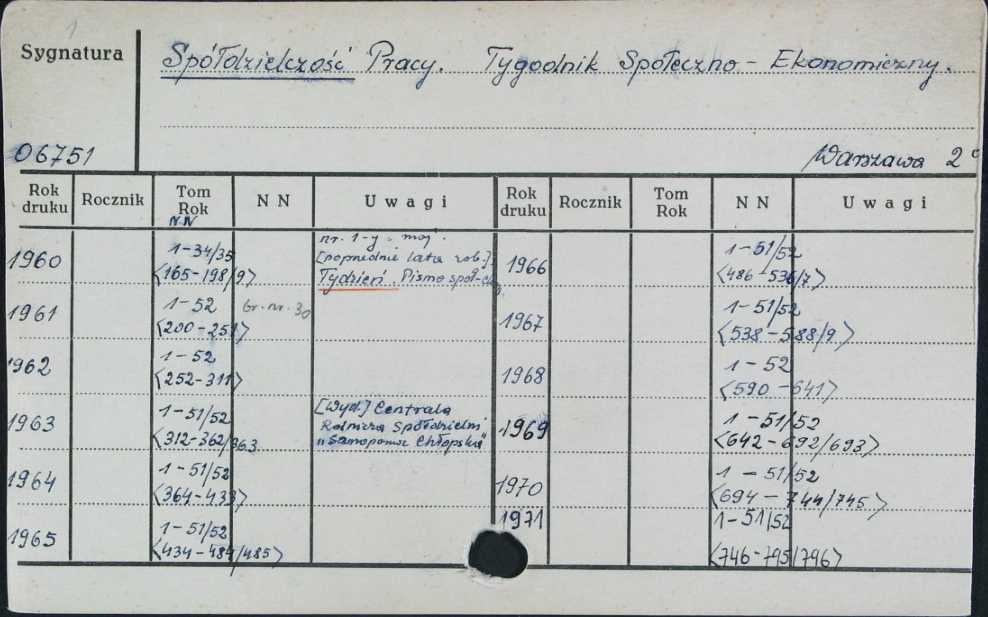 1
Sygnatura
Spółdzielczość Pracy. Tygodnik Społeczno-Ekonomiczny.
06751
Warszawa 2°
Rok druku Rocznik Tom Rok NN NN Uwagi Rok druku Rocznik Tom Rok NN Uwagi
1960 1-34/35 <165-198/9> nr. 1-y: maj.
[poprzednie lata zob.]
Tydzień. Pismo społ-
1961 1-52 <200-251> br. nr. 30
1962 1-52 <252-311>
1963 1-51/52 <312-362/363 [Wyd.] Centrala
Rolnicza Spółdzielni
"Samopomoc Chłopska"
1964 1-51/52 <364-433>
1965 1-51/52 <434-484/485>
1966 1-51/52 <486-536/7>
1967 1-51/52 <538-588/9>
1968 1-52 <590-641>
1969 1-51/52 <642-692/693>
1970 1-51/52 <694-744/745>
1971 1-51/52 <746-795/796>